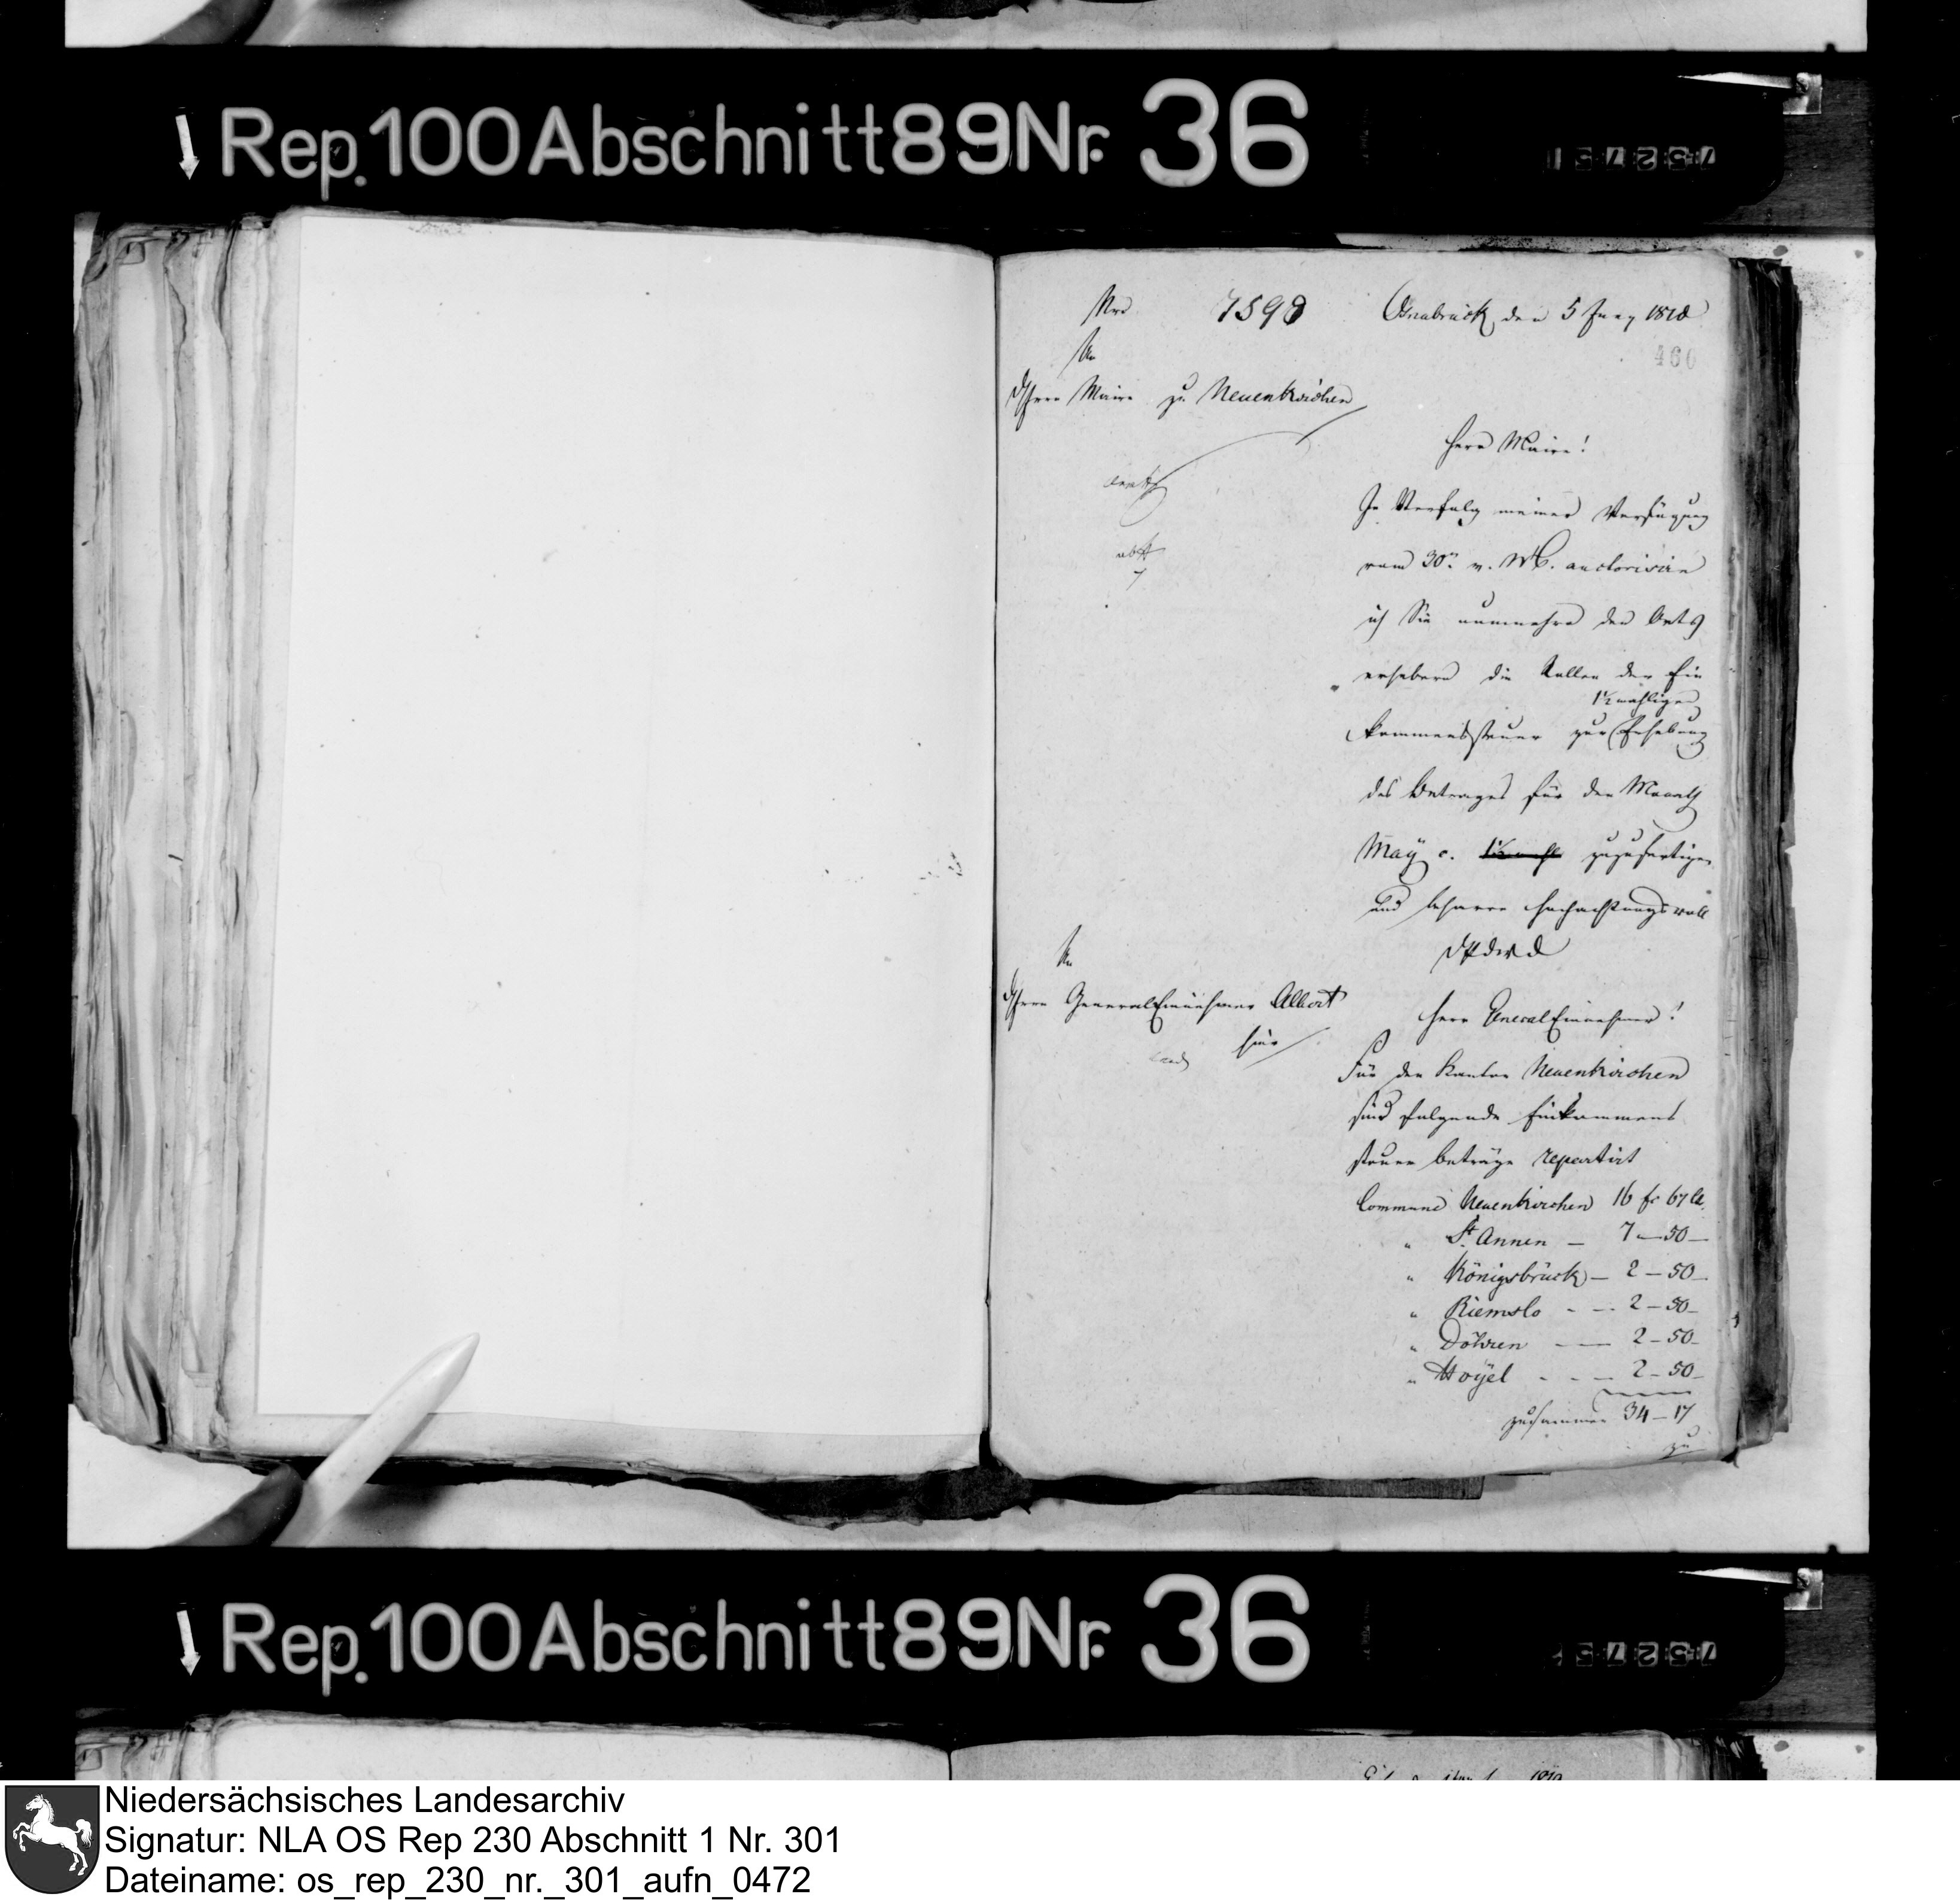 Rep. 100 Abschnitt 89 Nr. 36
Nro 7598 Osnabrück den 5 Juny 1810
460
An
Herrn Maire zu Neuenkirchen
Herr Maire!
In Verfolg meiner Verfügung
vom 30. v. M. auctorisire
ich Sie nunmehro den Orts
erhebern die Rollen der Ein
1½ mahligen
kommenssteuer zur Erhebung
des Betrages für den Monath
May c. zuzufertigen
und beharre hochachtungsvoll
An
Herrn General Einnehmer Albert
hier
Herr General Einnehmer!
Für den Kanton Neuenkirchen
sind folgende Einkommens
steuer beträge repartirt
Commune Neuenkirchen 16 fr 67 Ct.
" St. Annen — 7 — 50 —
" Königsbrück — 2 — 50 —
" Riemslo - — 2 — 50 —
" Döhren — 2 — 50 —
" Hoyel - - — 2 — 50 —
zusammen 34 — 17
zu
Rep. 100 Abschnitt 89 Nr. 36
Niedersächsisches Landesarchiv
Signatur: NLA OS Rep 230 Abschnitt 1 Nr. 301
Dateiname: os_rep_230_nr._301_aufn_0472